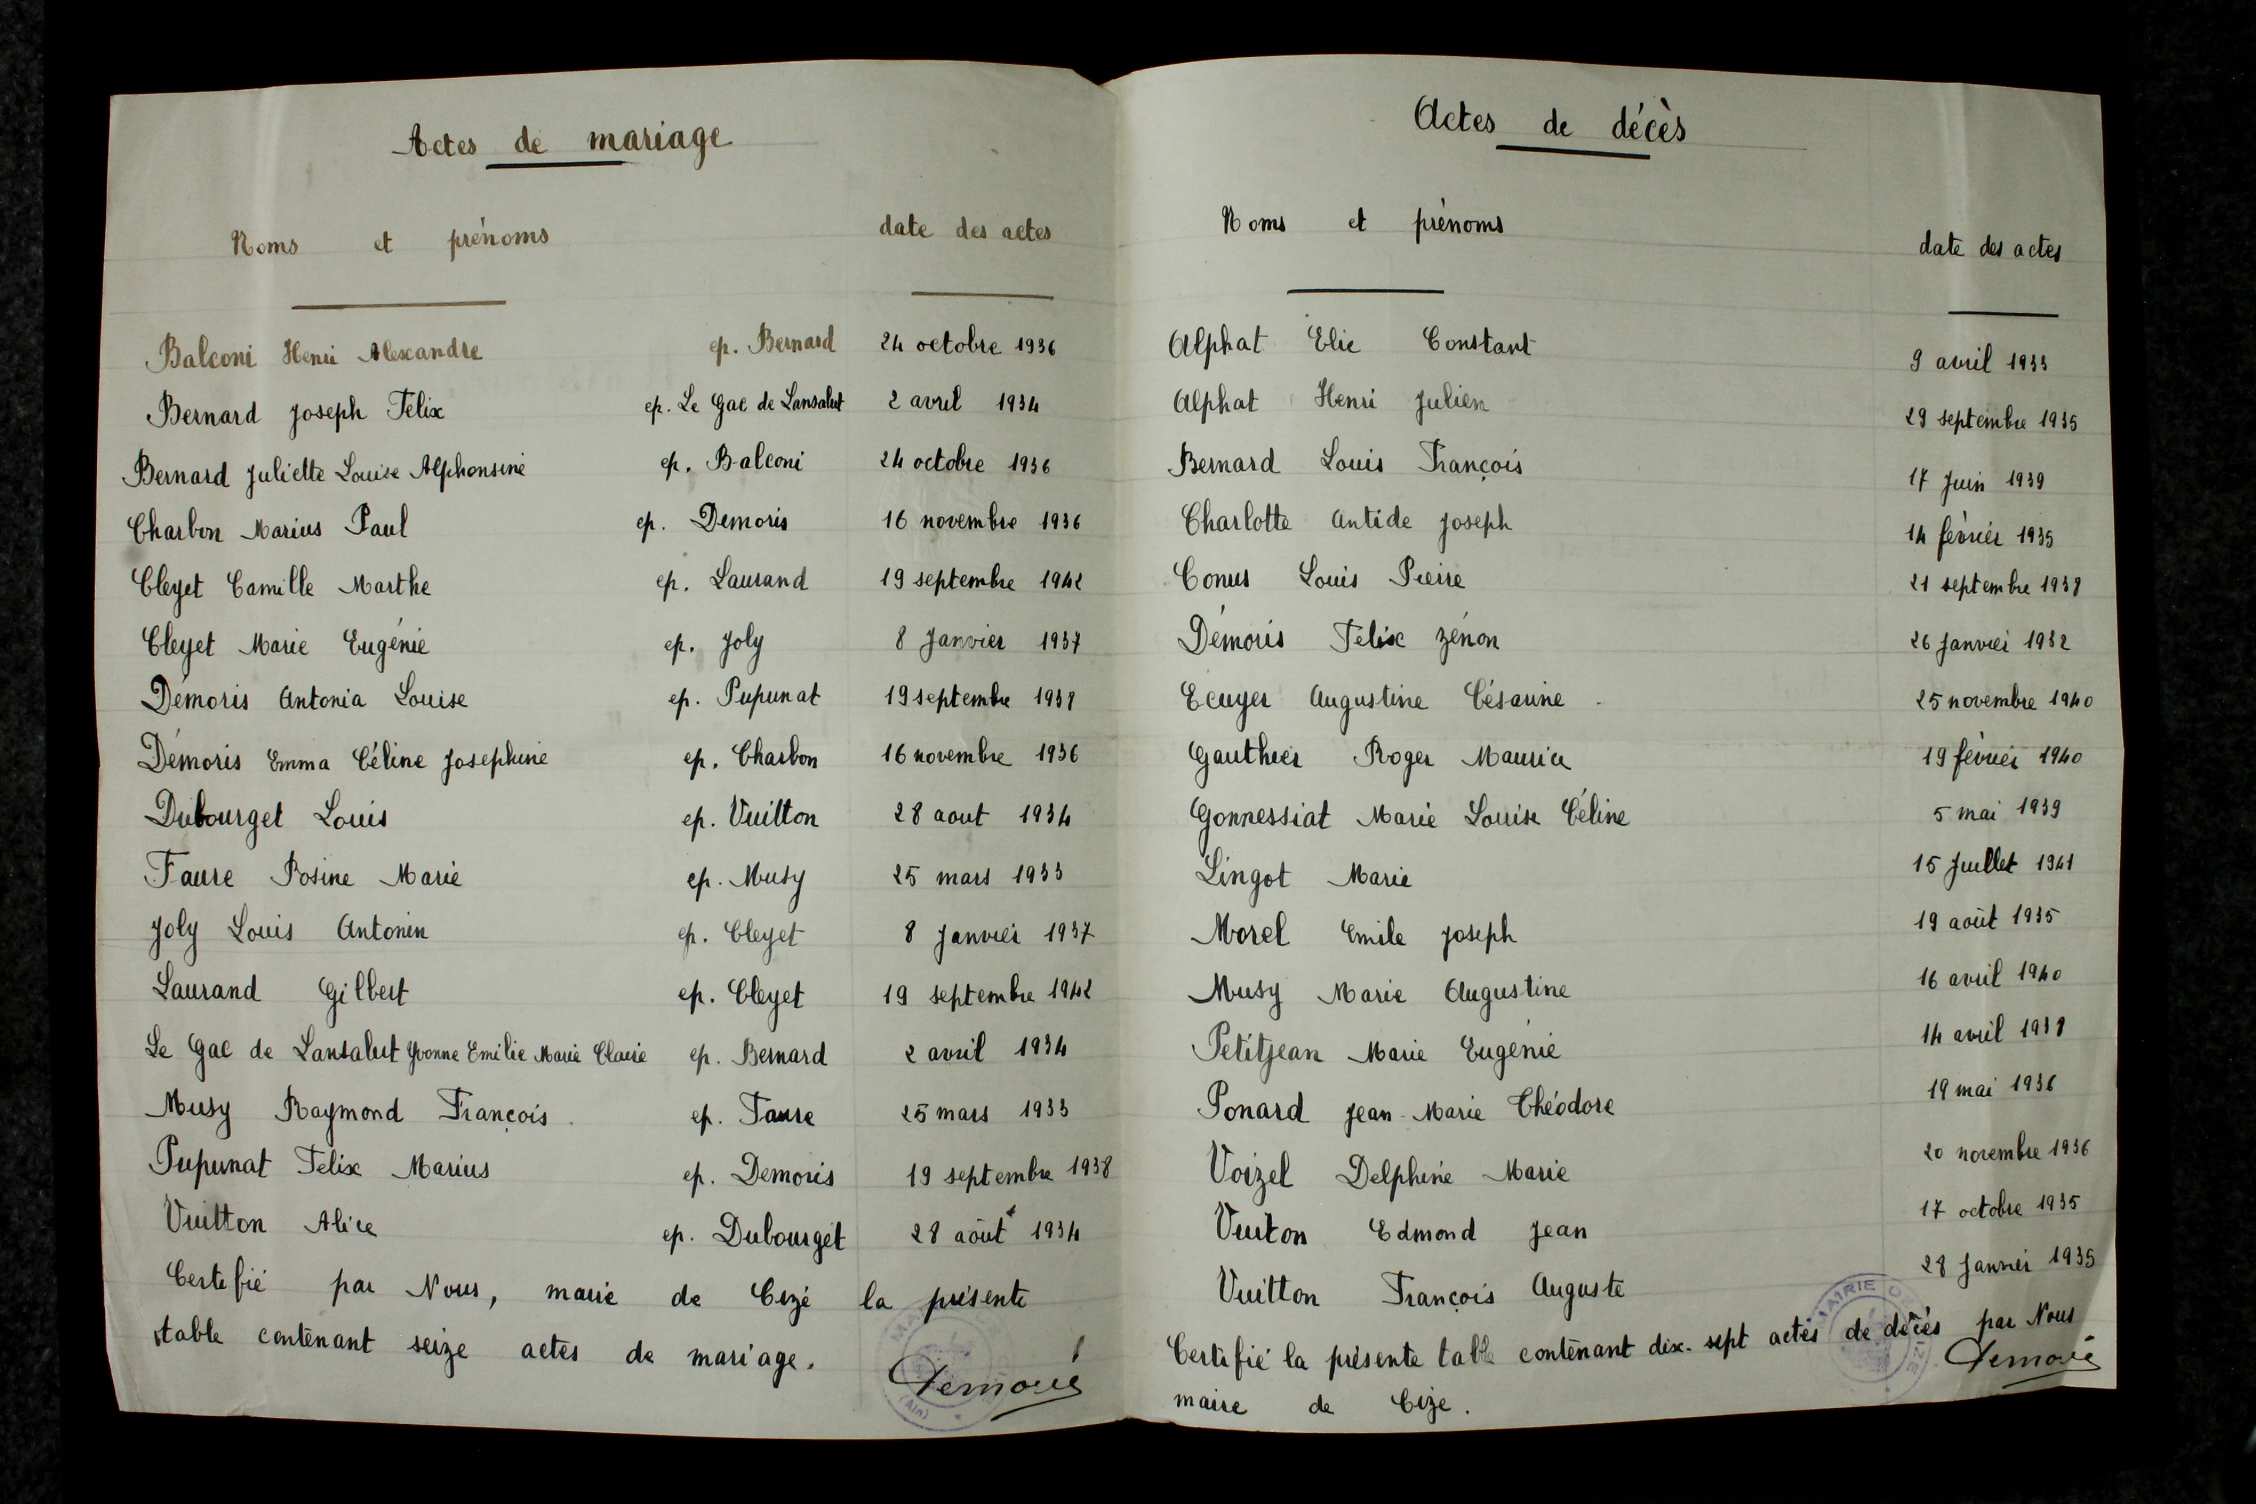 Actes de mariage
Noms et prénoms date des actes
Balconi Henri Alexandre ep. Bernard 24 octobre 1936
Bernard Joseph Félix ep. Le Gac de Lansalut 2 avril 1934
Bernard Juliette Louise Alphonsine ep. Balconi 24 octobre 1936
Charbon Marius Paul ep. Demoris 16 novembre 1936
Cleyet Camille Marthe ep. Laurand 19 septembre 1942
Cleyet Marie Eugénie ep. Joly 8 Janvier 1937
Démoris Antonia Louise ep. Pupunat 19 septembre 1938
Démoris Emma Céline Joséphine ep. Charbon 16 novembre 1936
Dubourget Louis ep. Vuitton 28 aout 1934
Faure Rosine Marie ep. Musy 25 mars 1933
Joly Louis Antonin ep. Cleyet 8 Janvier 1937
Laurand Gilbert ep. Cleyet 19 septembre 1942
Le Gac de Lansalut Yvonne Emilie Marie Claire ep. Bernard 2 avril 1934
Musy Raymond François ep. Faure 25 mars 1933
Pupunat Félix Marius ep. Demoris 19 septembre 1938
Vuitton Alice ep. Dubourget 28 août 1934
Certifié par Nous, maire de Cize la présente
table contenant seize actes de mariage.
Demoris
(Ain)
Actes de décès
Noms et prénoms date des actes
Alphat Elie Constant 9 avril 1933
Alphat Henri Julien 29 septembre 1935
Bernard Louis François 17 Juin 1939
Charlotte Antide Joseph 14 février 1935
Conus Louis Pierre 21 septembre 1938
Démoris Félix Zénon 26 Janvier 1932
Ecuyer Augustine Césarine 25 novembre 1940
Gauthier Roger Maurice 19 février 1940
Gonnessiat Marie Louise Céline 5 mai 1939
Lingot Marie 15 Juillet 1941
Morel Emile Joseph 19 août 1935
Musy Marie Augustine 16 avril 1940
Petitjean Marie Eugénie 14 avril 1938
Ponard Jean-Marie Théodore 19 mai 1936
Voizel Delphine Marie 20 novembre 1936
Vuiton Edmond Jean 17 octobre 1935
Vuitton François Auguste 28 Janvier 1935
Certifié la présente table contenant dix-sept actes de décès par Nous
maire de Cize.
Demoris
MAIRIE DE CIZE